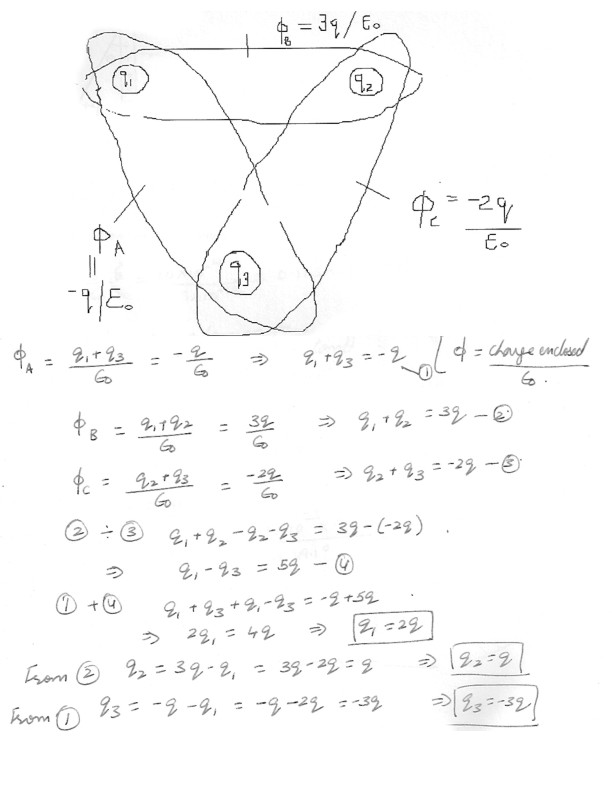 ϕ_B = 3q/ε₀
q₁
q₂
ϕ_A = -q/ε₀
ϕ_C = -2q/ε₀
q₃
ϕ_A = (q₁+q₃)/ε₀ = -q/ε₀ ⇒ q₁+q₃ = -q — ① ( ϕ = charge enclosed/ε₀.
ϕ_B = (q₁+q₂)/ε₀ = 3q/ε₀ ⇒ q₁+q₂ = 3q — ②
ϕ_C = (q₂+q₃)/ε₀ = -2q/ε₀ ⇒ q₂+q₃ = -2q — ③
② ÷ ③ q₁+q₂-q₂-q₃ = 3q-(-2q).
⇒ q₁-q₃ = 5q — ④
① + ④ q₁+q₃+q₁-q₃ = -q+5q.
⇒ 2q₁ = 4q ⇒ q₁=2q
From ② q₂ = 3q-q₁ = 3q-2q = q ⇒ q₂=q
From ① q₃ = -q-q₁ = -q-2q = -3q ⇒ q₃=-3q